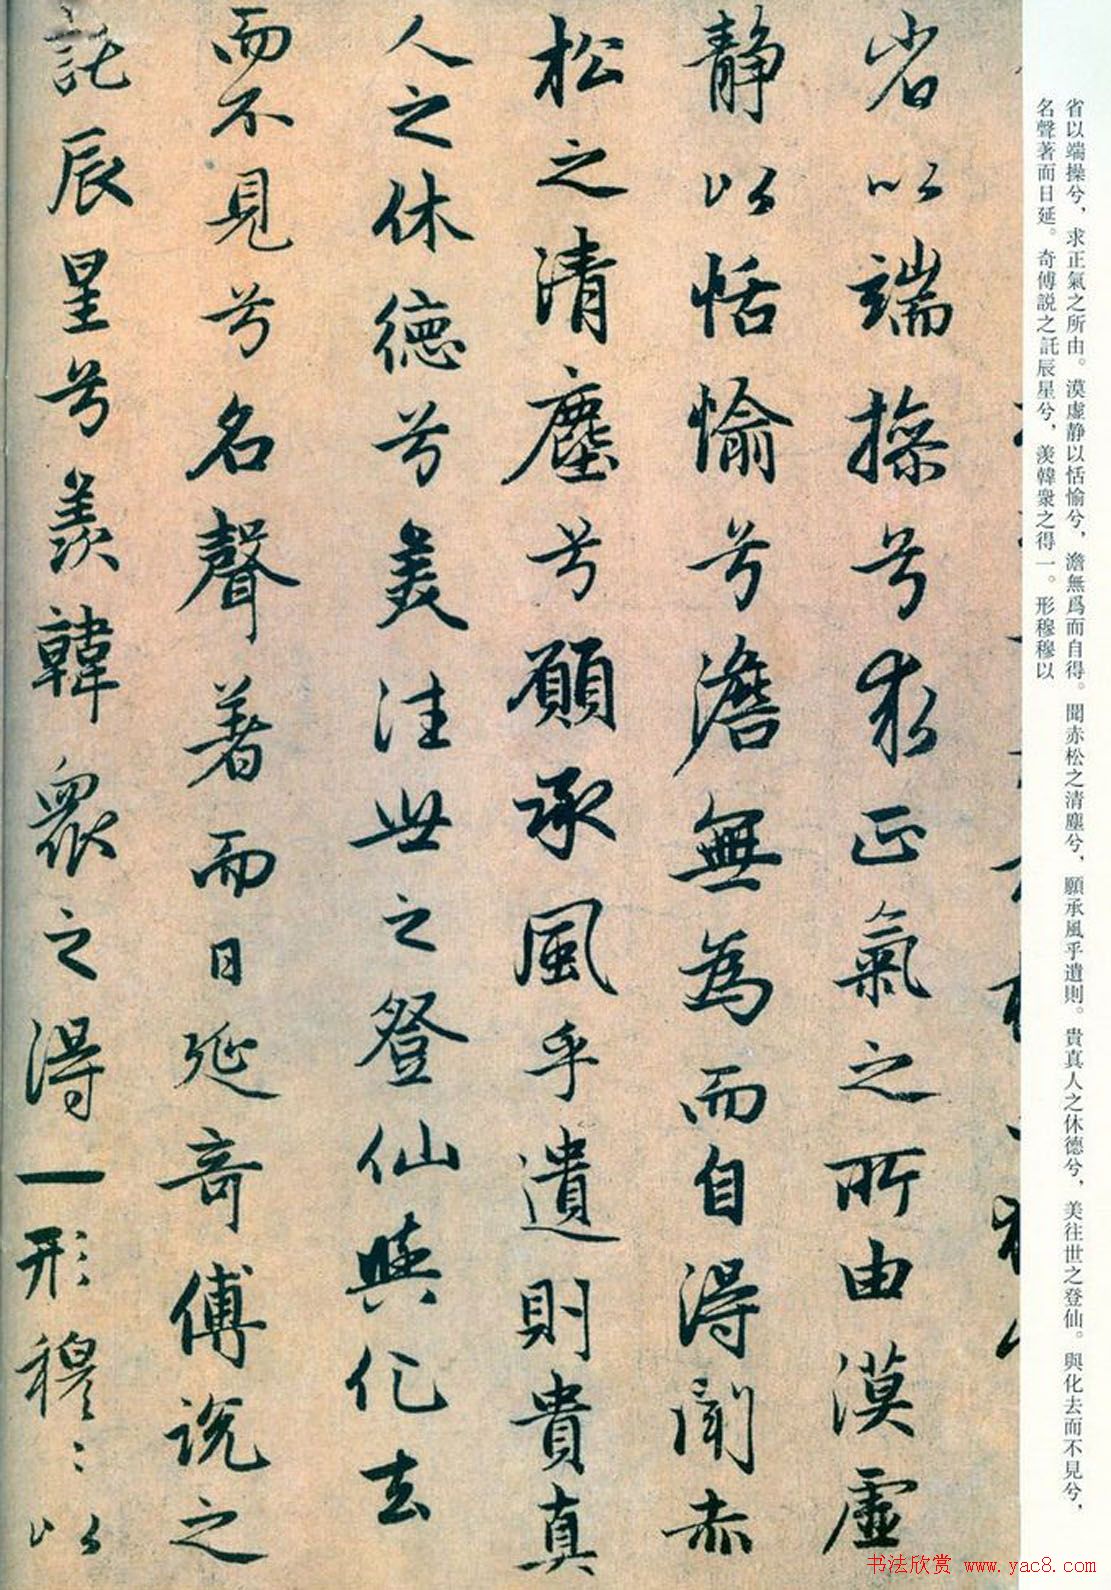 省以端操兮求正氣之所由漠虛
静以恬愉兮澹無為而自得聞赤
松之清塵兮願承風乎遺則貴真
人之休德兮美往世之登仙與化去
而不見兮名聲著而日延奇傅說之
託辰星兮羨韓衆之得一形穆〻以
省以端操兮，求正氣之所由。漠虛静以恬愉兮，澹無爲而自得。聞赤松之清塵兮，願承風乎遺則。貴真人之休德兮，美往世之登仙。與化去而不見兮，
名聲著而日延。奇傅説之託辰星兮，羨韓衆之得一。形穆穆以
书法欣赏 www.yac8.com